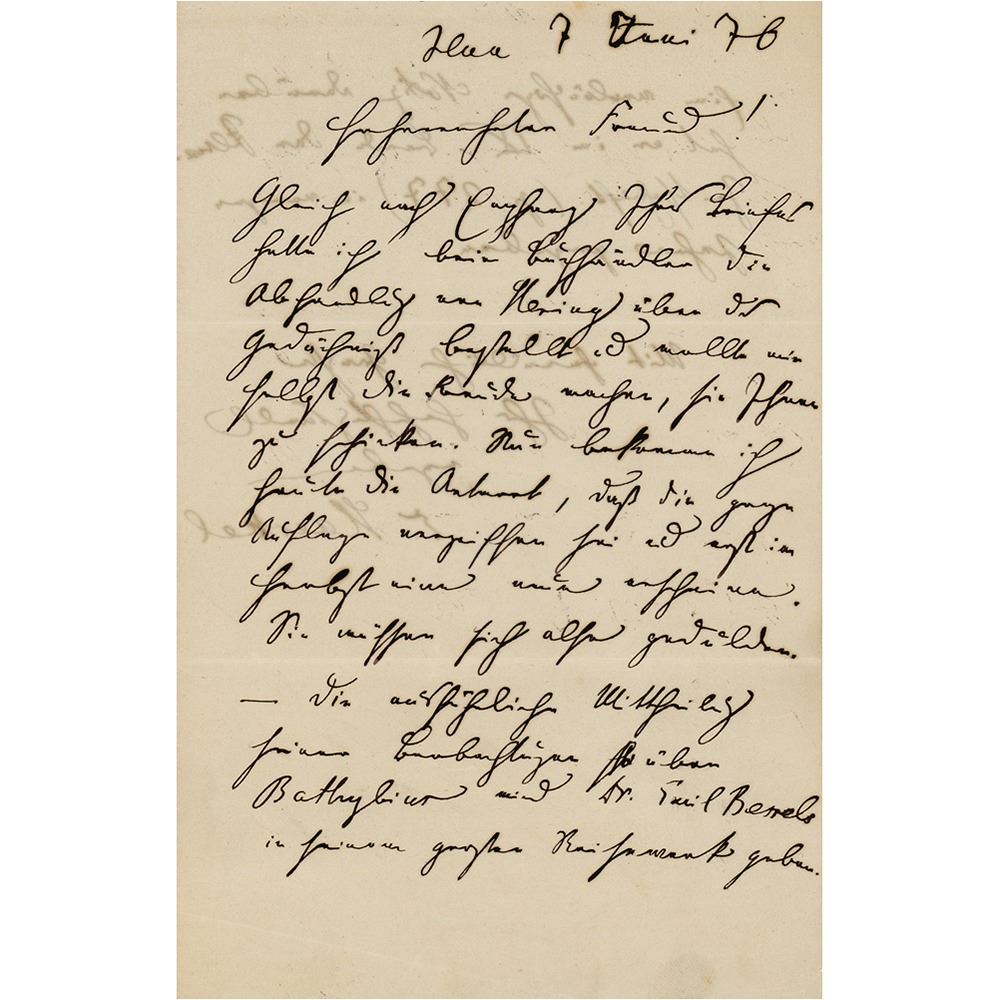 Jena 7 Juni 76
Hochverehrter Freund!
Gleich nach Empfang Ihres Briefes
hatte ich beim Buchhändler die
Abhandlg von Hering über das
Gedächniß bestellt und wollte mir
selbst die Freude machen, sie Ihnen
zu schicken. Nun bekomme ich
heute die Antwort, daß die ganze
Auflage vergriffen sei und erst im
Herbst eine neue erscheine.
Sie müssen sich also gedulden.
— Die ausführliche Mittheilg
seiner Beobachtungen über
Bathybius wird Dr. Emil Bessels
in seinem großen Reisewerk geben.